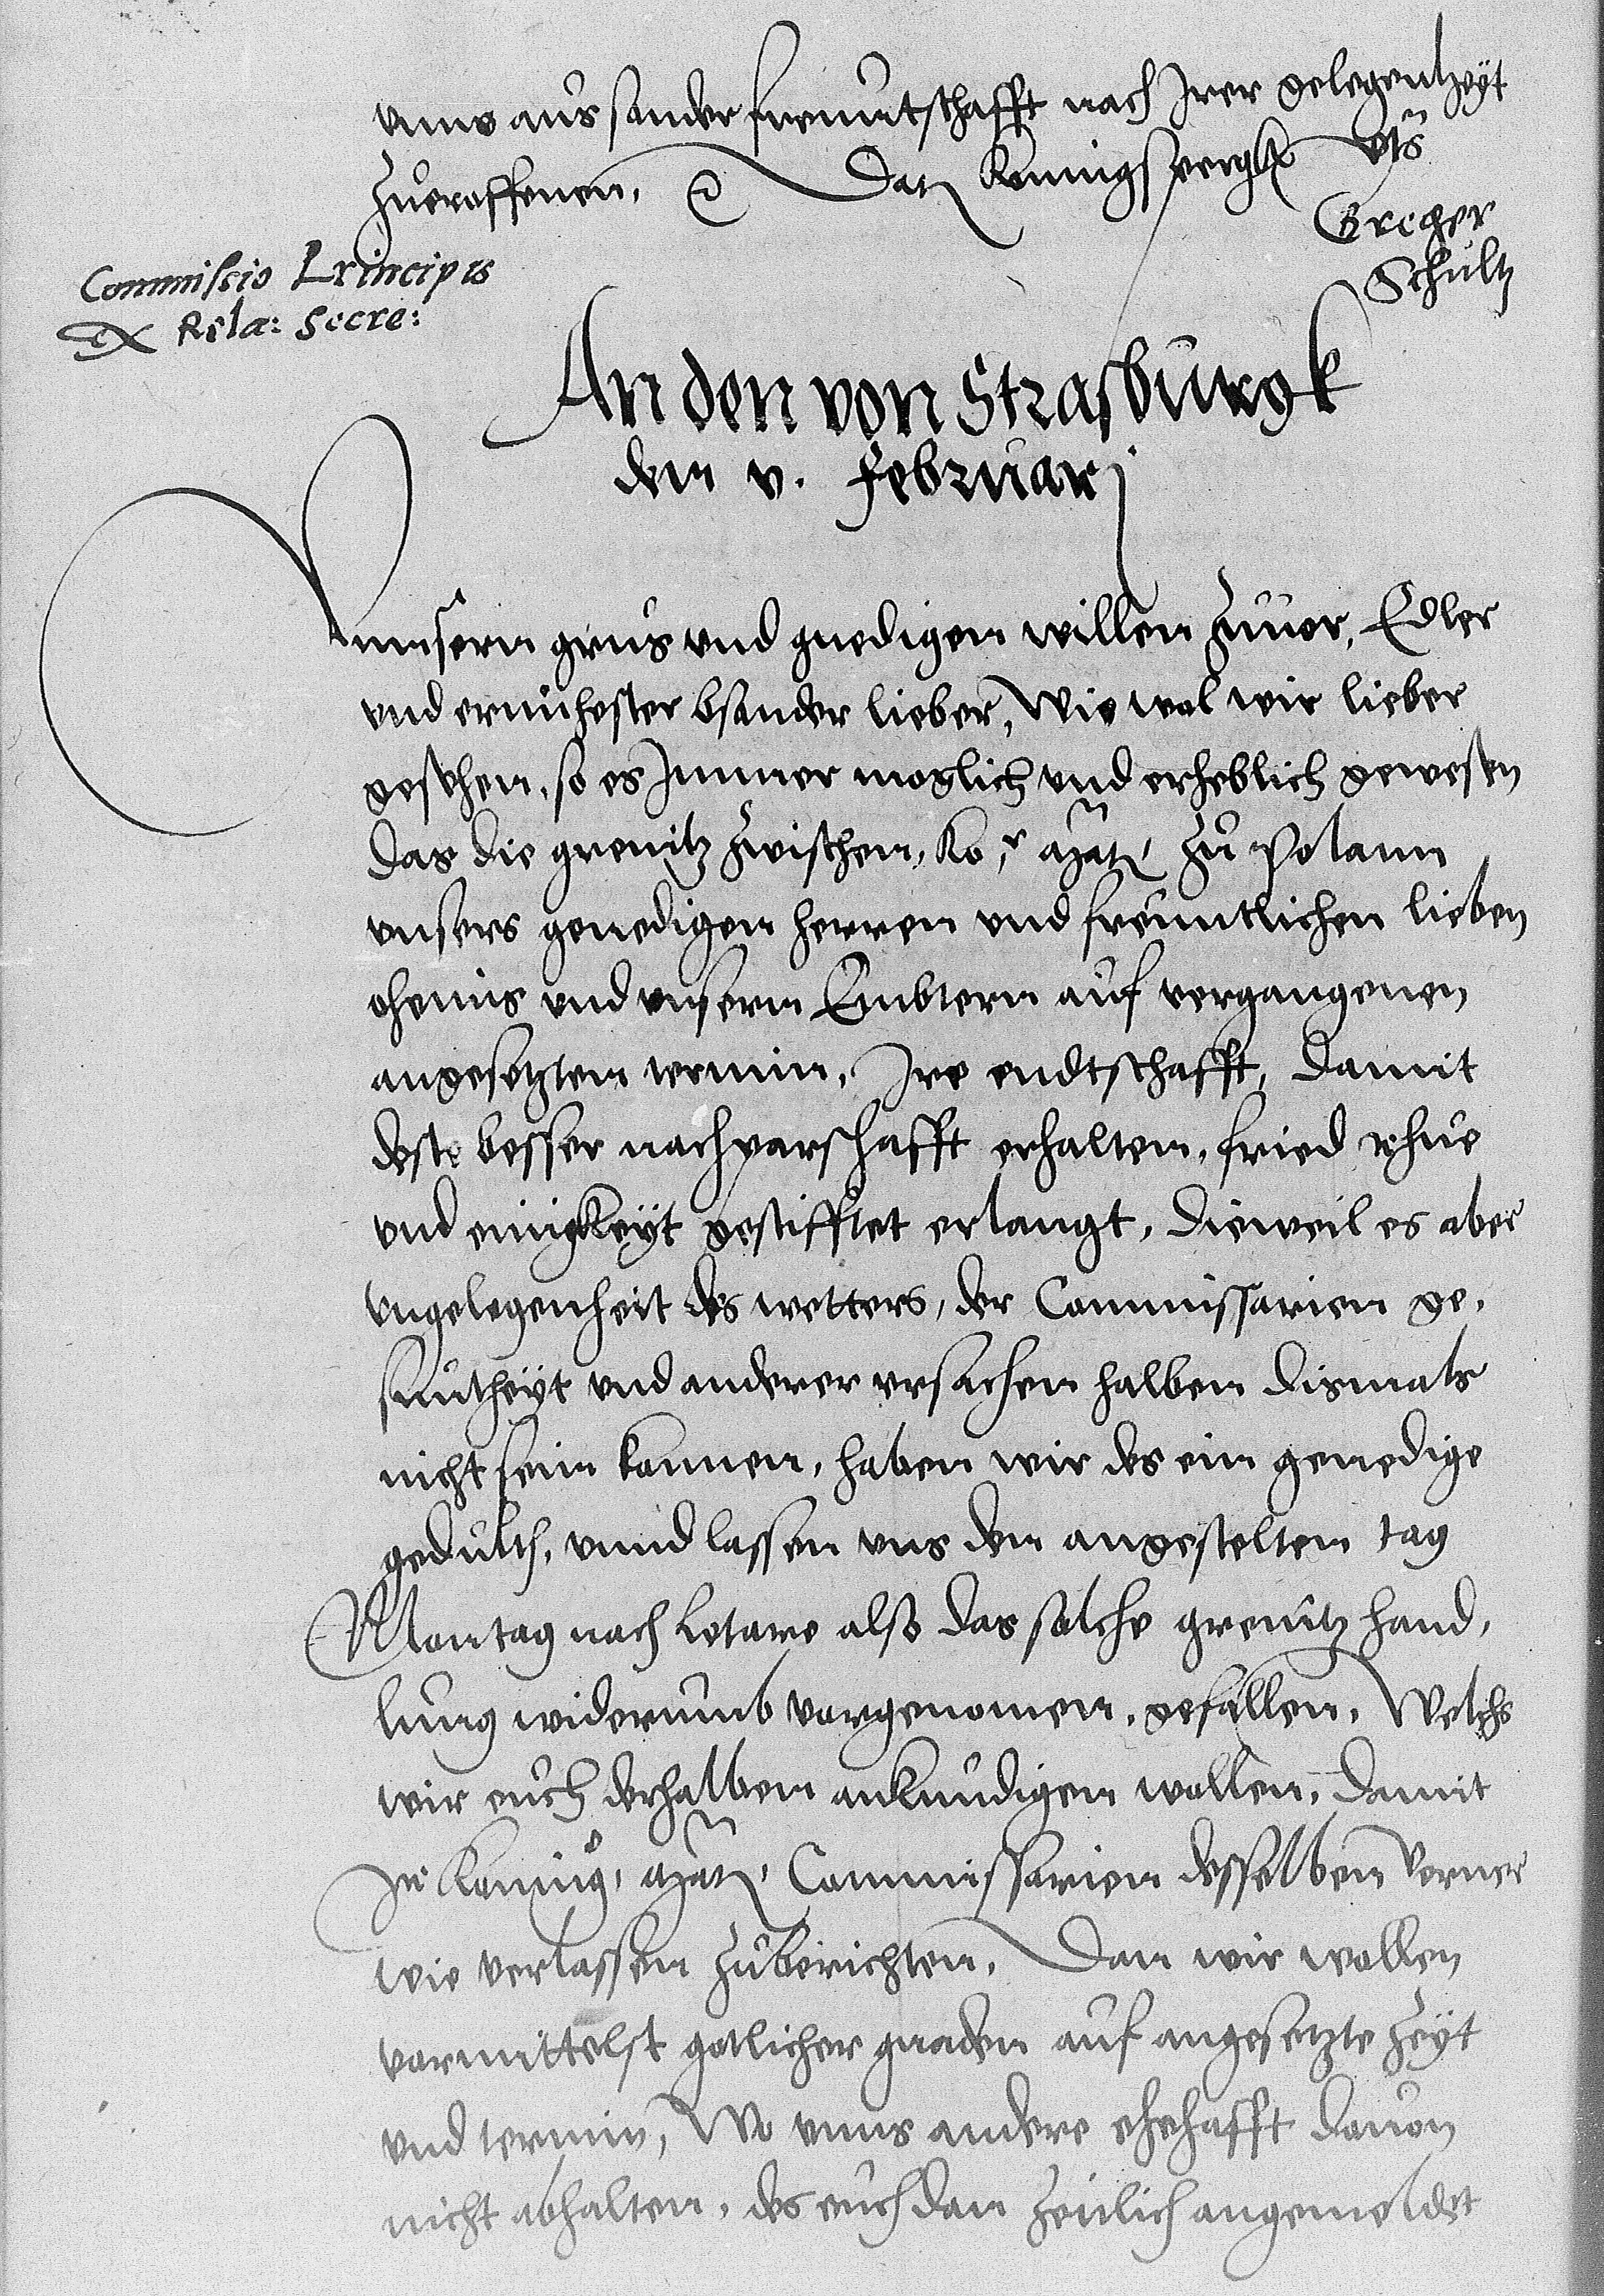 vnns aus sonder freuntschafft nach Irer gelegenheyt
zueroffenen, Datum Konnigsperg vts
Greger
Schultz
Commissio Principis
ex Rela: Secre:
An den von Strasburgk
den v. Februarj
Vnnsern grus vnd gnedigen willen zuuor, Edler
vnd ernuhester bsonder lieber, Wie wol wir lieber
gesehen, so es Immer moglich vnd erheblich gewesen
das die grenitz zwischen, Ko,r Mat, zu Polann
vnsers genedigen herren vnd freuntlichen lieben
ohmis vnd vnsern Embtern auf vergangenen
angesetzten termin, Ire endtschafft, damit
deste besser nachparschafft erhalten, fried rhue
vnd einigkeyt gestifftet erlangt, dieweil es aber
vngelegenheit des wetters, der Commissarien ge,
suntheyt vnd anderer vrsachen halben dismals
nicht sein konnen, haben wir des ein genedige
gedulth, vnnd lassen vns den angestelten tag
Montag nach Letare also das solche grenitz hand,
lung widerumb vorgenomen, gefallen, Welchs
wir euch derhalben ankundigen wollen, damit
Ir Koning, Mat, Commissarien desselben ferner
wie verlassen zuberichten, Dan wir wollen
vormittelst gotlicher gnaden auf angesetzte zeyt
vnd termin, Wo vnns andere ehehafft dauon
nicht abhalten, des euch dan zeitlich angemeldet